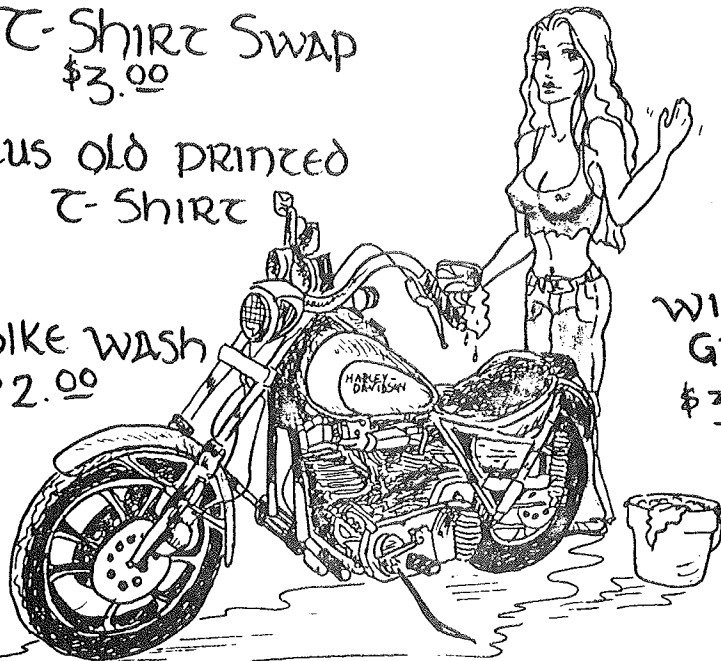 T-Shirt Swap
$3.00
old printed
T-Shirt
Wash
2.00
HARLEY-
DAVIDSON